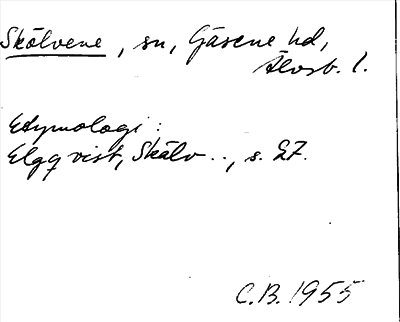 Skölvene, sn, Gäsene hd,
Älvsb. l.
Etymologi:
Elgqvist, Skälv.., s. 27.
C.B. 1955